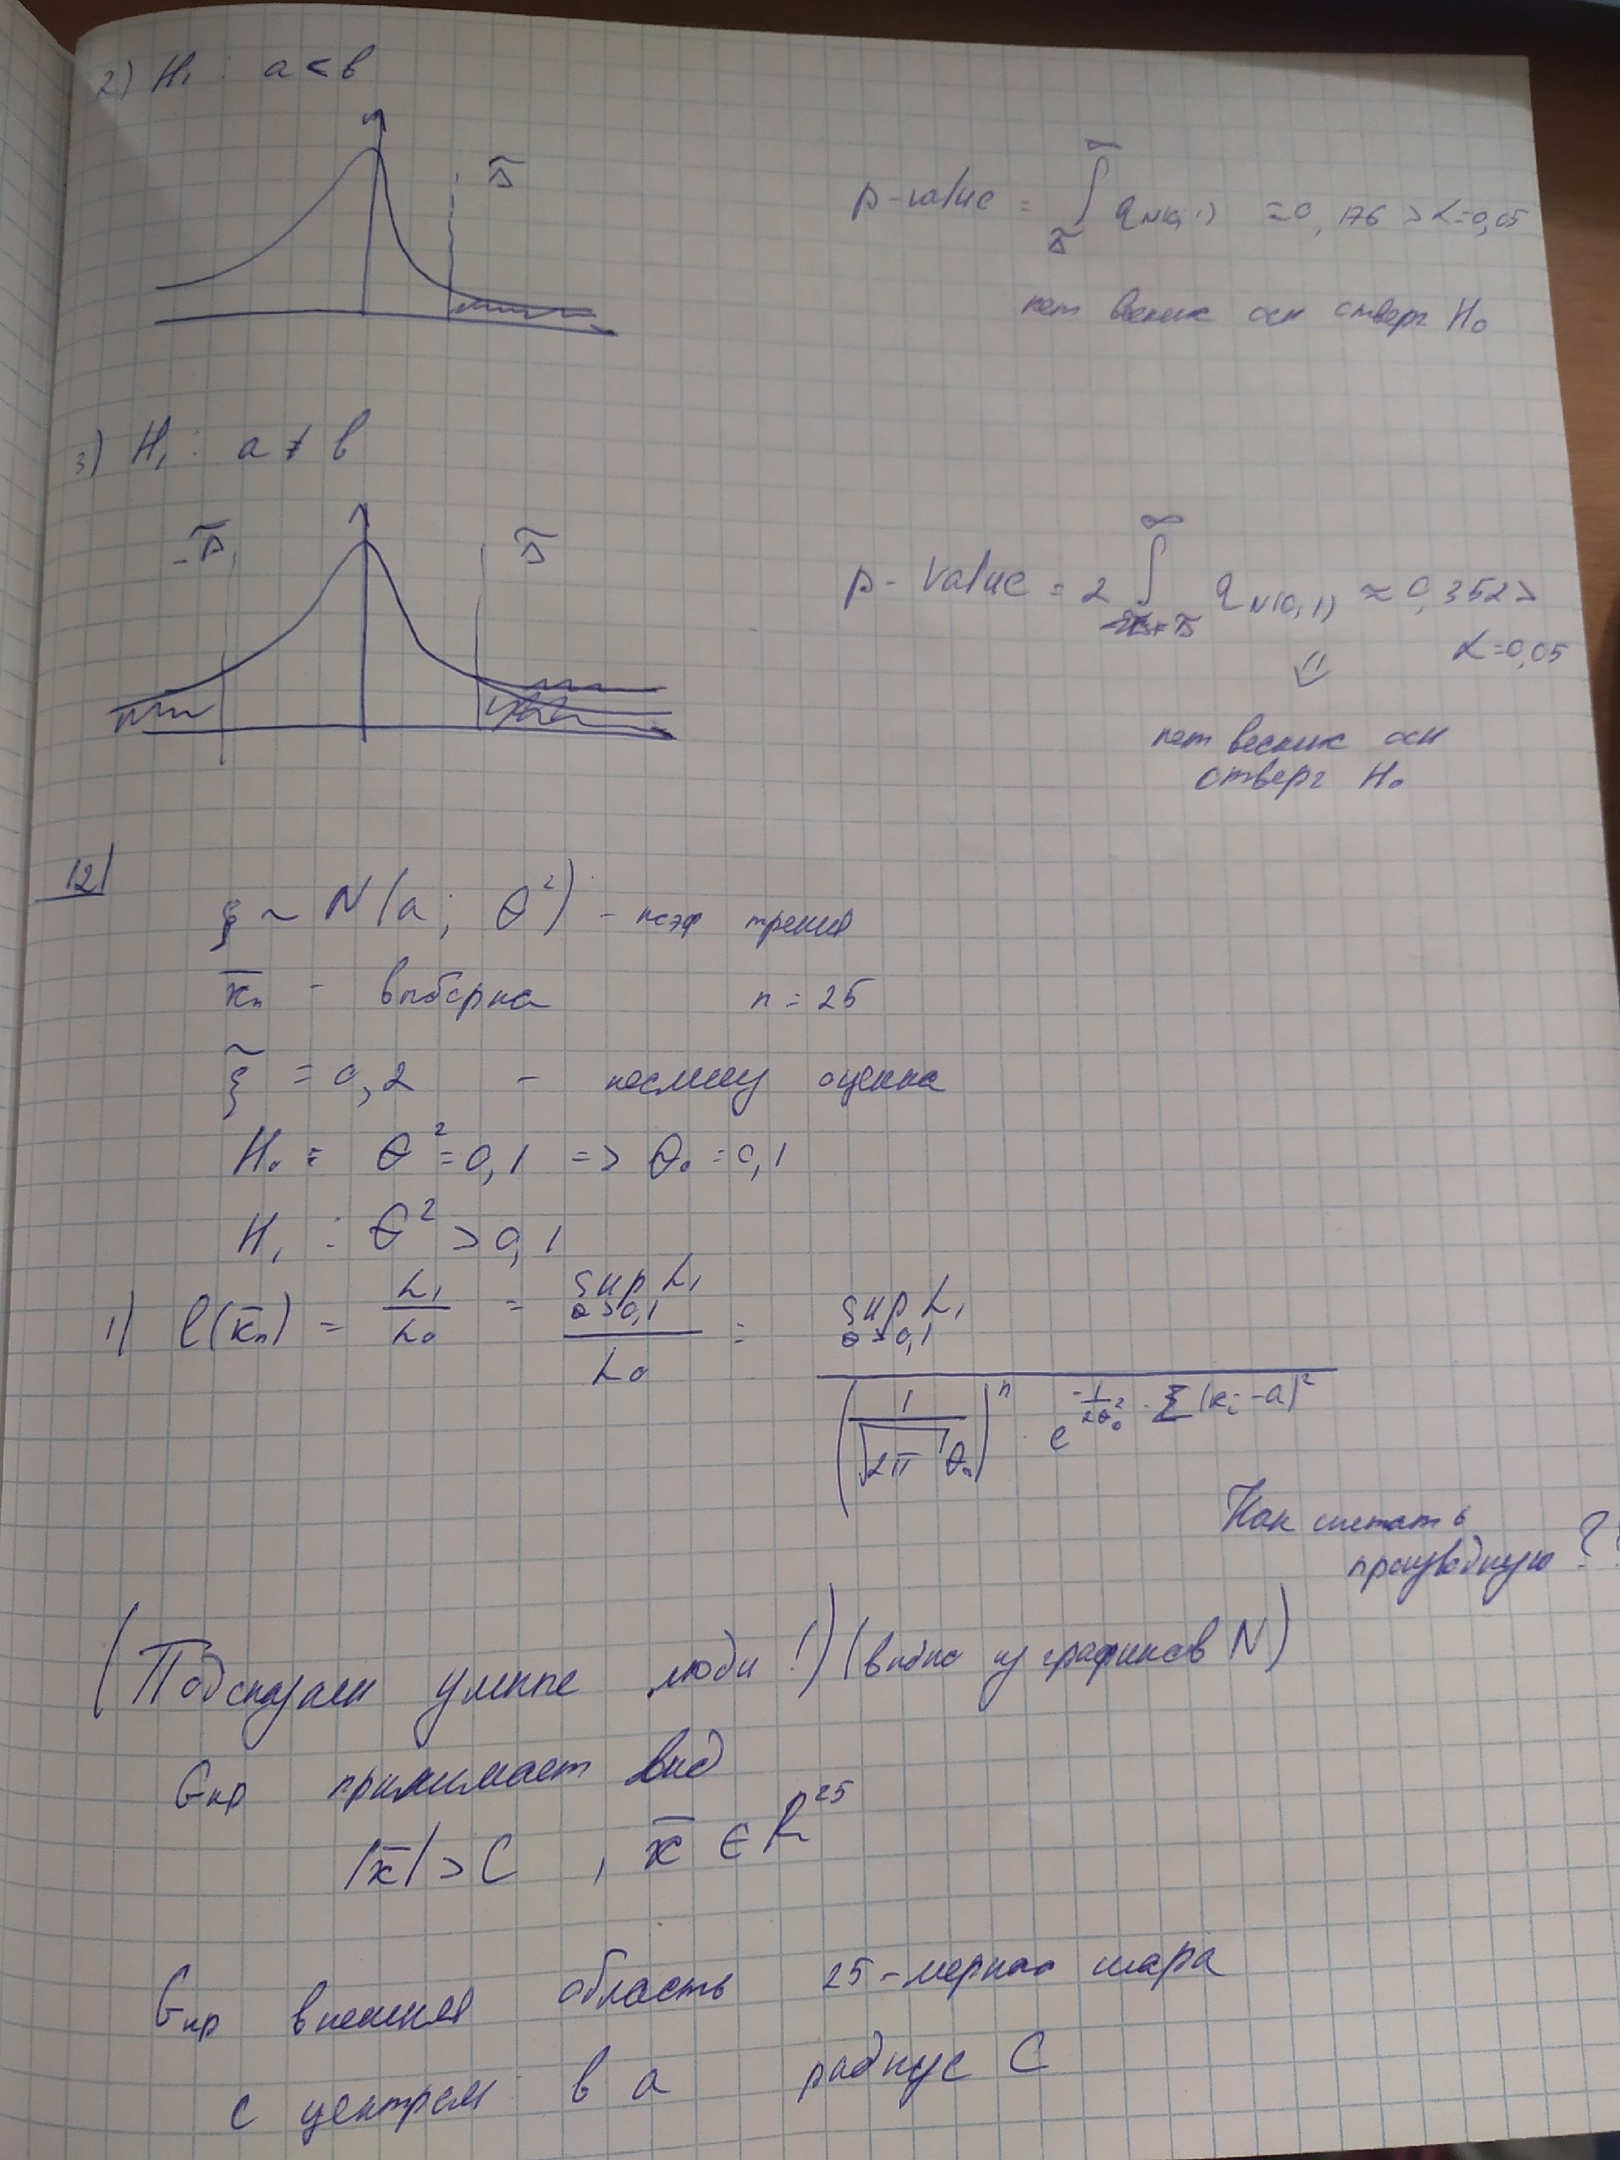 2) H₁ : a < b
Δ̃
p-value = ∫_Δ̃^∞ q_N(0,1) ≈ 0,176 > α=0,05
нет веских осн отверг H₀
3) H₁ : a ≠ b
-Δ̃ Δ̃
p-value = 2 ∫_Δ̃^∞ q_N(0,1) ≈ 0,352 >
α=0,05
⇓
нет веских осн
отверг H₀
12)
ξ ~ N(a; θ²) - коэф трения
x̄ₙ - выборка n = 25
ξ̃ = 0,2 - несмещ оценка
H₀ = θ² = 0,1 => θ₀ = 0,1
H₁ : θ² > 0,1
1) l(x̄ₙ) = L₁/L₀ = sup_{θ>0,1} L₁ / L₀ = sup_{θ>0,1} L₁ / ((1/(√2π θ₀))ⁿ e^{-1/(2θ₀²) · Σ(xᵢ-a)²})
Как считать
производную ?
(Подсказали умные люди!) (видно из графиков N)
Gкр принимает вид
|x̄| > C , x̄ ∈ R²⁵
Gкр внешняя область 25-мерного шара
с центром в a радиус C